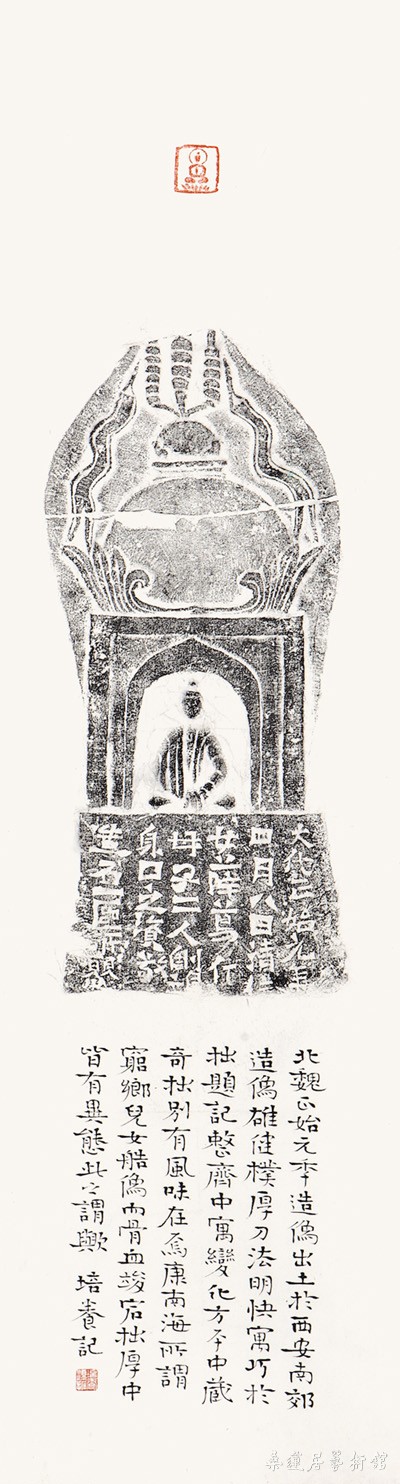 大代正始元年
四月八日清信
女薛
子二人削
身口之資敬
造石一區願
北魏正始元年造像出土於西安南郊
造像雄健樸厚刀法明快寓巧於
拙題記整齊中寓變化方平中藏
奇拙別有風味在焉康南海所謂
窮鄉兒女艁像而骨血竣宕拙厚中
皆有異態此之謂歟 培養記
桑蓮居藝術館